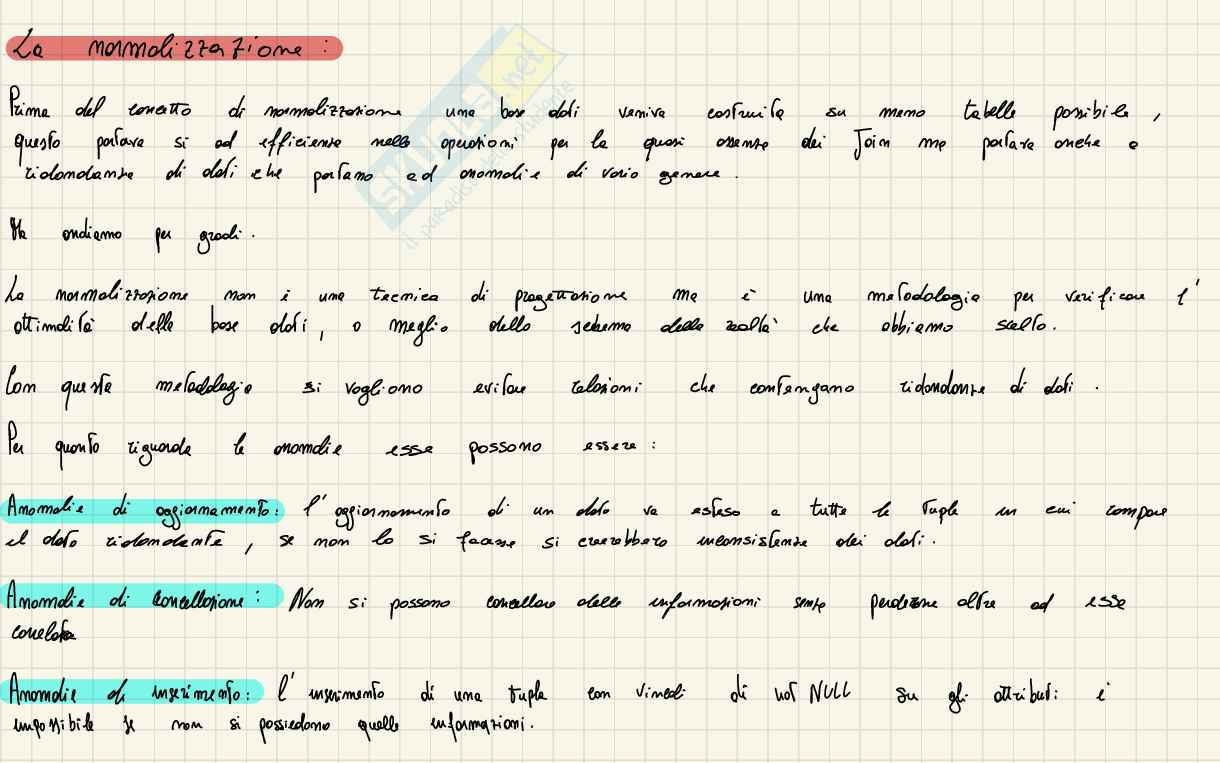 La normalizzazione :
Prima del concetto di normalizzazione una base dati veniva costruita su meno tabelle possibile ,
questo portava si ad efficienza nelle operazioni per la quasi assenza dei Join ma portava anche a
ridondanze di dati che portano ad anomalie di vario genere .
Ma andiamo per gradi .
La normalizzazione non è una tecnica di progettazione ma è una metodologia per verificare l'
ottimalità della base dati , o meglio dello schema della realta' che abbiamo scelto .
Con questa metodologia si vogliono evitare relazioni che contengano ridondanze di dati .
Per quanto riguarda le anomalie esse possono essere :
Anomalie di aggiornamento : l' aggiornamento di un dato va esteso a tutte le tuple in cui compare
il dato ridondante , se non lo si facesse si creerebbero inconsistenze dei dati .
Anomalie di cancellazione : Non si possono cancellare delle informazioni senza perderne altre ad esse
correlate
Anomalie di inserimento : l' inserimento di una tupla con vincoli di not NULL su gli attributi è
impossibile se non si possiedono quelle informazioni .
SKUOLA.net
il paradiso dello studente